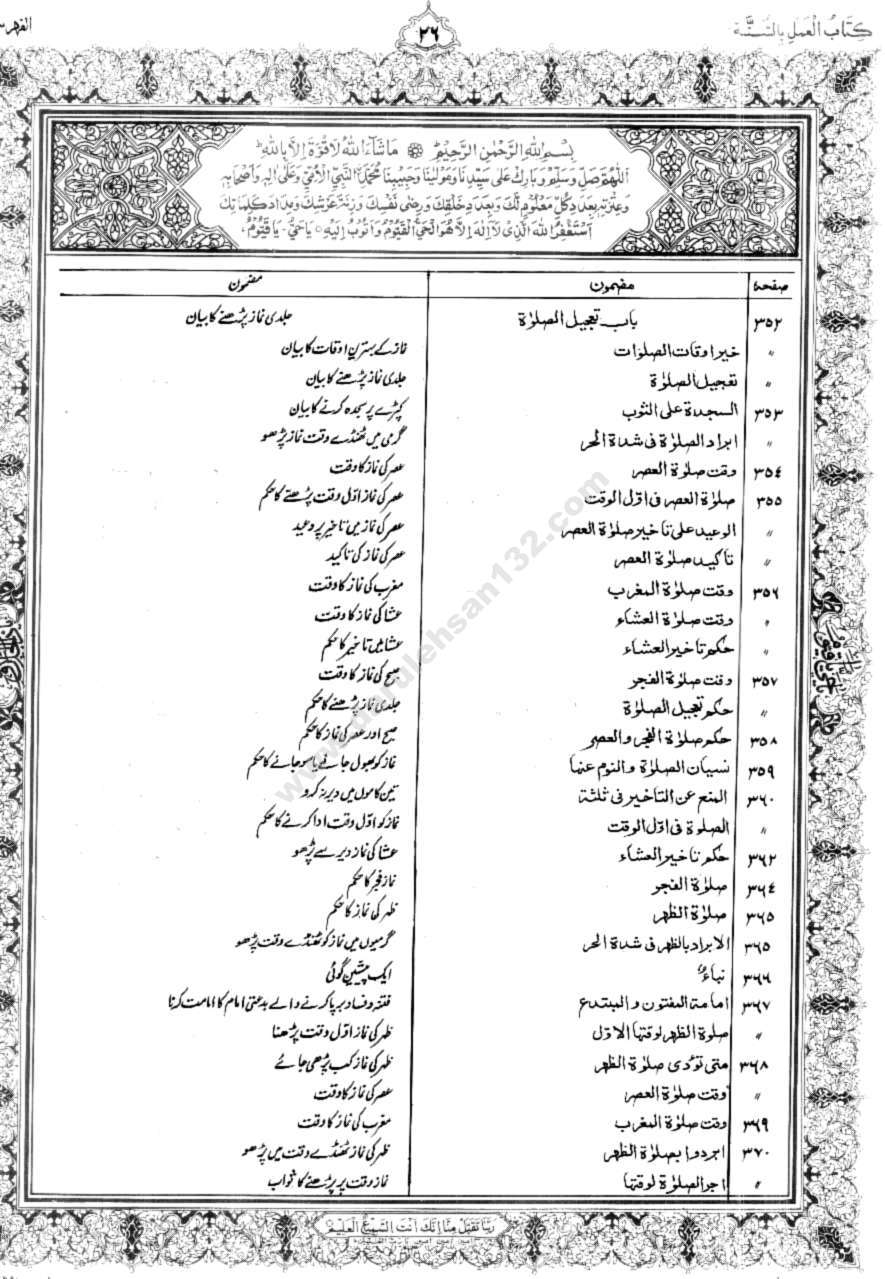 كِتَابُ الْعَمَلِ بِالسُّنَّة
٣٦
الفهرس
بِسْمِ اللهِ الرَّحْمٰنِ الرَّحِيْمِ مَاشَآءَ اللهُ لَا قُوَّةَ اِلَّا بِاللهِ
اَللّٰهُمَّ صَلِّ وَسَلِّمْ وَبَارِكْ عَلٰى سَيِّدِنَا وَمَوْلٰينَا وَحَبِيْبِنَا مُحَمَّدٍ النَّبِيِّ الْاُمِّيِّ وَعَلٰى اٰلِهٖ وَاَصْحَابِهٖ
وَعِتْرَتِهٖ بِعَدَدِ كُلِّ مَعْلُوْمٍ لَّكَ وَبِعَدَدِ خَلْقِكَ وَرِضٰى نَفْسِكَ وَزِنَةِ عَرْشِكَ وَمِدَادِ كَلِمَاتِكَ
اَسْتَغْفِرُ اللهَ الَّذِىْ لَآ اِلٰهَ اِلَّا هُوَ الْحَيُّ الْقَيُّوْمُ وَاَتُوْبُ اِلَيْهِ يَا حَيُّ يَا قَيُّوْمُ
صفحہ مضمون مضمون
٣٥٢ باب تعجيل الصلوٰة جلدی نماز پڑھنے کا بیان
〃 خير اوقات الصلوٰات نماز کے بہترین اوقات کا بیان
〃 تعجيل الصلوٰة جلدی نماز پڑھنے کا بیان
٣٥٣ السجدة على الثوب کپڑے پر سجدہ کرنے کا بیان
〃 ابراد الصلوٰة فى شدة الحر گرمی میں ٹھنڈے وقت نماز پڑھو
٣٥٤ وقت صلوٰة العصر عصر کی نماز کا وقت
٣٥٥ صلوٰة العصر فى اوّل الوقت عصر کی نماز اوّل وقت پڑھنے کا حکم
〃 الوعيد على تاخير صلوٰة العصر عصر کی نماز میں تاخیر پر وعید
〃 تاكيد صلوٰة العصر عصر کی نماز کی تاکید
٣٥٦ وقت صلوٰة المغرب مغرب کی نماز کا وقت
〃 وقت صلوٰة العشاء عشا کی نماز کا وقت
〃 حكم تاخير العشاء عشا میں تاخیر کا حکم
٣٥٧ وقت صلوٰة الفجر صبح کی نماز کا وقت
〃 حكم تعجيل الصلوٰة جلدی نماز پڑھنے کا حکم
٣٥٨ حكم صلوٰة الفجر والعصر صبح اور عصر کی نماز کا حکم
٣٥٩ نسيان الصلوٰة والنوم عنها نماز کو بھول جانے یا سو جانے کا حکم
٣٦٠ المنع عن التاخير فى ثلثة تین کاموں میں دیر نہ کرو
〃 الصلوٰة فى اوّل الوقت نماز کو اوّل وقت ادا کرنے کا حکم
٣٦٢ حكم تاخير العشاء عشا کی نماز دیر سے پڑھو
٣٦٤ صلوٰة الفجر نماز فجر کا حکم
٣٦٥ صلوٰة الظهر ظہر کی نماز کا حکم
٣٦٥ الابراد بالظهر فى شدة الحر گرمیوں میں نماز کو ٹھنڈے وقت پڑھو
٣٦٦ نباءٌ ایک پیشین گوئی
٣٦٧ امامة المفتون و المبتدع فتنہ و فساد برپا کرنے والے بدعتی امام کا امامت کرنا
〃 صلوة الظهر لوقتها الاوّل ظہر کی نماز اوّل وقت پڑھنا
٣٦٨ متى تؤدى صلوٰة الظهر ظہر کی نماز کب پڑھی جائے
〃 وقت صلوٰة العصر عصر کی نماز کا وقت
٣٦٩ وقت صلوٰة المغرب مغرب کی نماز کا وقت
٣٧٠ ابردوا بصلوٰة الظهر ظہر کی نماز ٹھنڈے وقت میں پڑھو
〃 اجر الصلوٰة لوقتها نماز وقت پر پڑھنے کا ثواب
رَبَّنَا تَقَبَّلْ مِنَّا اِنَّكَ اَنْتَ السَّمِيْعُ الْعَلِيْمُ
www.darulehsan132.com